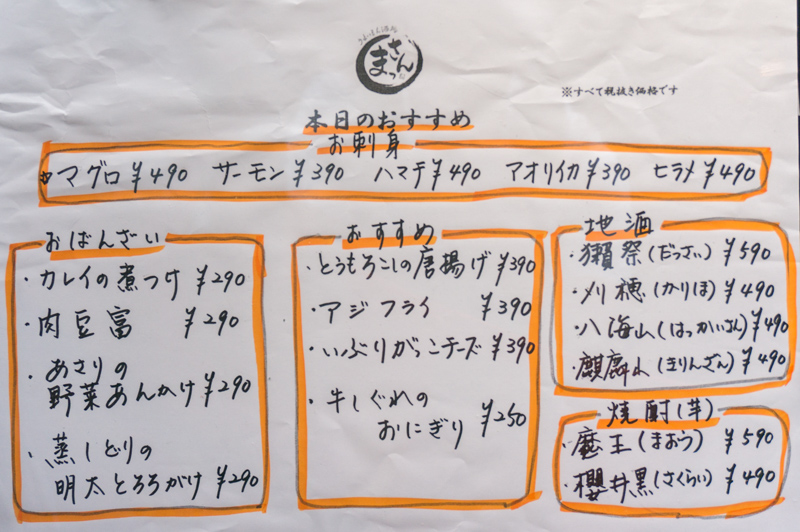 まさんっ
※すべて税抜き価格です
本日のおすすめ
お刺身
マグロ ¥490 サーモン ¥390 ハマチ ¥490 アオリイカ ¥390 ヒラメ ¥490
おばんざい
・カレイの煮つけ ¥290
・肉豆富 ¥290
・あさりの
野菜あんかけ ¥290
・蒸しどりの
明太とろろがけ ¥290
おすすめ
・とうもろこしの唐揚げ ¥390
・アジフライ ¥390
・いぶりがっこチーズ ¥390
・牛しぐれの
おにぎり ¥250
地酒
・獺祭(だっさい) ¥590
・刈穂(かりほ) ¥490
・八海山(はっかいさん) ¥490
・麒麟山(きりんざん) ¥490
焼酎(芋)
・魔王(まおう) ¥590
・櫻井黒(さくらい) ¥490